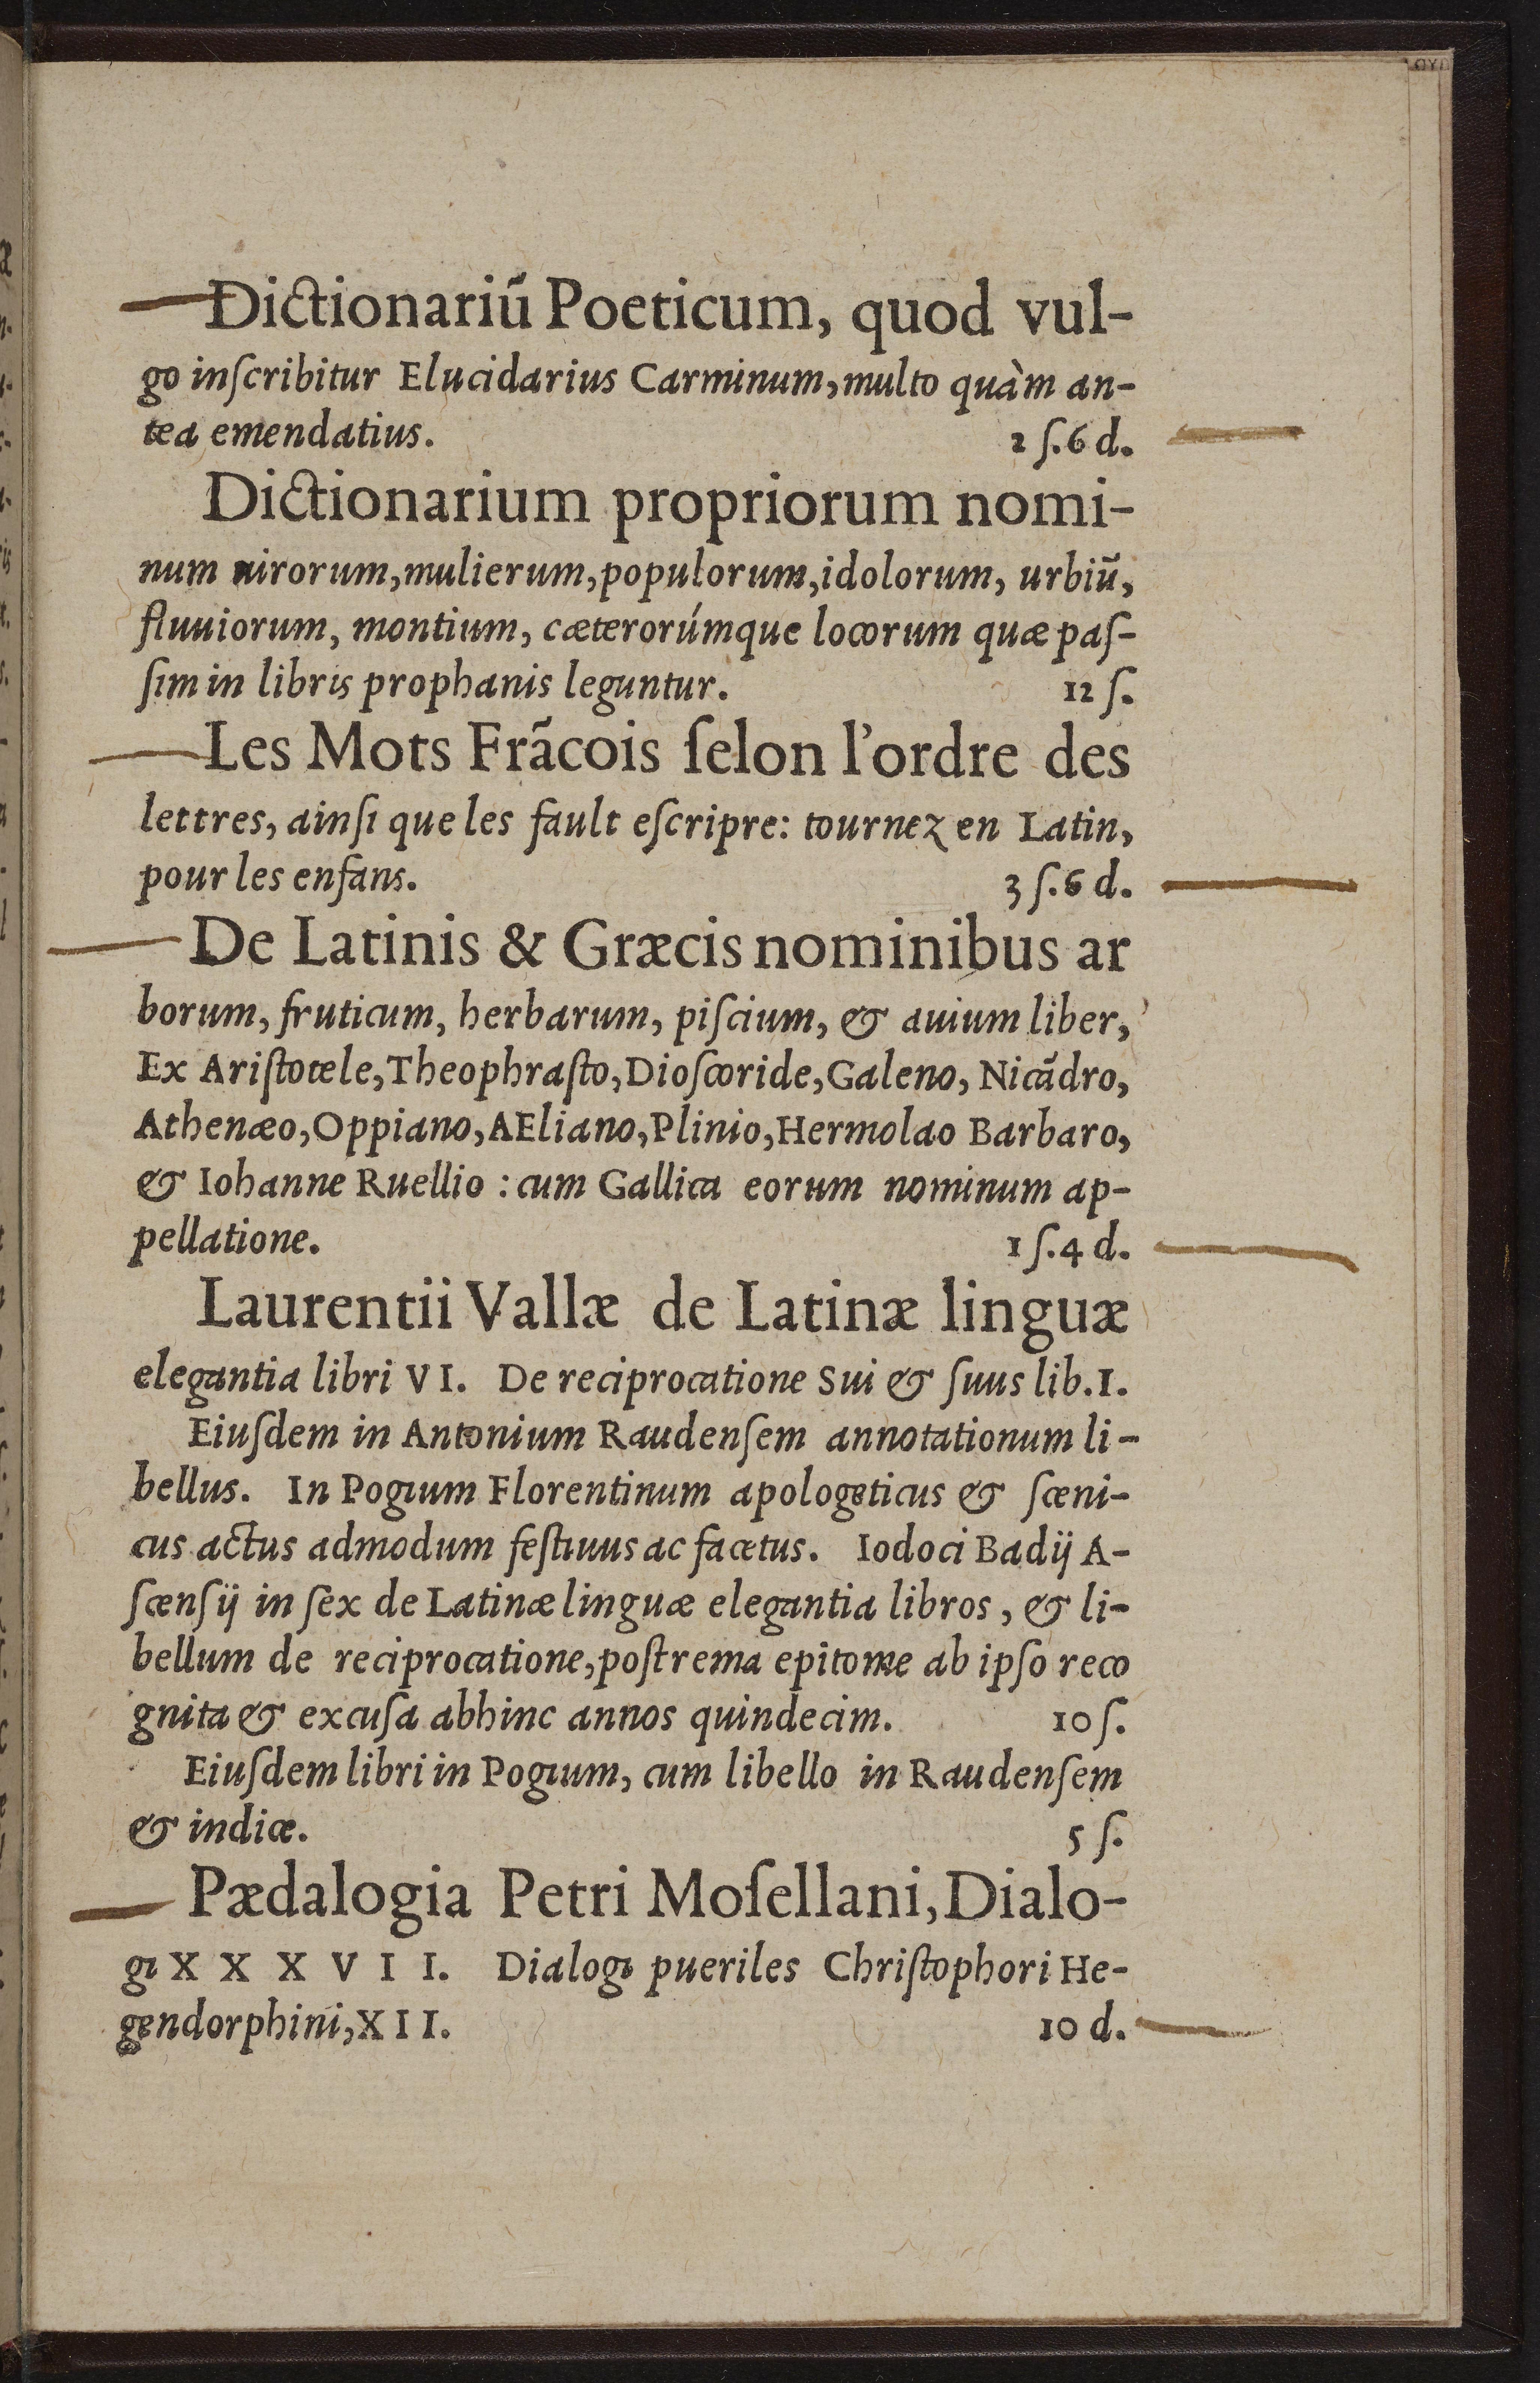 Dictionariũ Poeticum, quod vul-
go inſcribitur Elucidarius Carminum, multo quàm an-
tea emendatius. 2 ſ. 6 d.
Dictionarium propriorum nomi-
num uirorum, mulierum, populorum, idolorum, urbiũ,
fluuiorum, montium, cæterorúmque locorum quæ paſ-
ſim in libris prophanis leguntur. 12 ſ.
Les Mots Frãcois ſelon l'ordre des
lettres, ainſi que les fault eſcripre: tournez en Latin,
pour les enfans. 3 ſ. 6 d.
De Latinis & Græcis nominibus ar
borum, fruticum, herbarum, piſcium, & auium liber,
Ex Ariſtotele, Theophraſto, Dioſcoride, Galeno, Nicãdro,
Athenæo, Oppiano, AEliano, Plinio, Hermolao Barbaro,
& Iohanne Ruellio : cum Gallica eorum nominum ap-
pellatione. 1 ſ. 4 d.
Laurentii Vallæ de Latinæ linguæ
elegantia libri VI. De reciprocatione Sui & ſuus lib. I.
Eiuſdem in Antonium Raudenſem annotationum li-
bellus. In Pogium Florentinum apologeticus & ſceni-
cus actus admodum feſtiuus ac facetus. Iodoci Badij A-
ſcenſij in ſex de Latinæ linguæ elegantia libros, & li-
bellum de reciprocatione, poſtrema epitome ab ipſo reco
gnita & excuſa abhinc annos quindecim. 10 ſ.
Eiuſdem libri in Pogium, cum libello in Raudenſem
& indice. 5 ſ.
Pædalogia Petri Moſellani, Dialo-
gi XXXVII. Dialogi pueriles Chriſtophori He-
gendorphini, XII. 10 d.